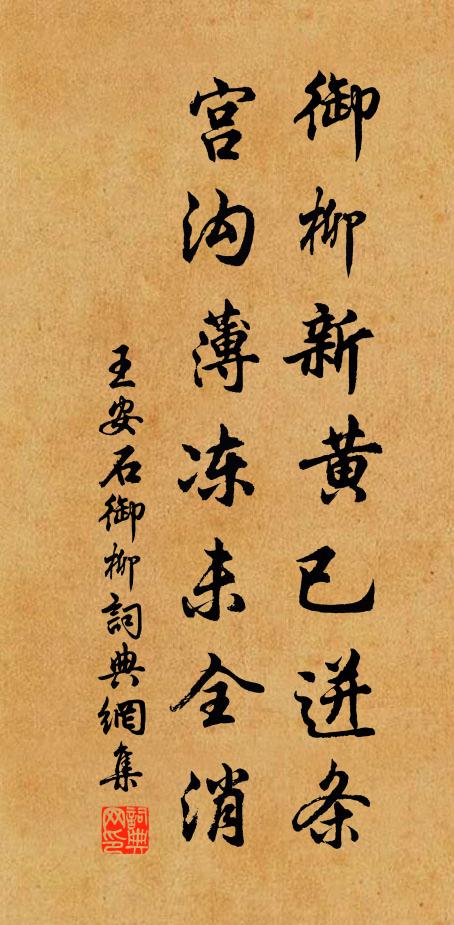 御柳新黄已迸条
宫沟薄冻未全消
王安石御柳詞典網集
詞典网印